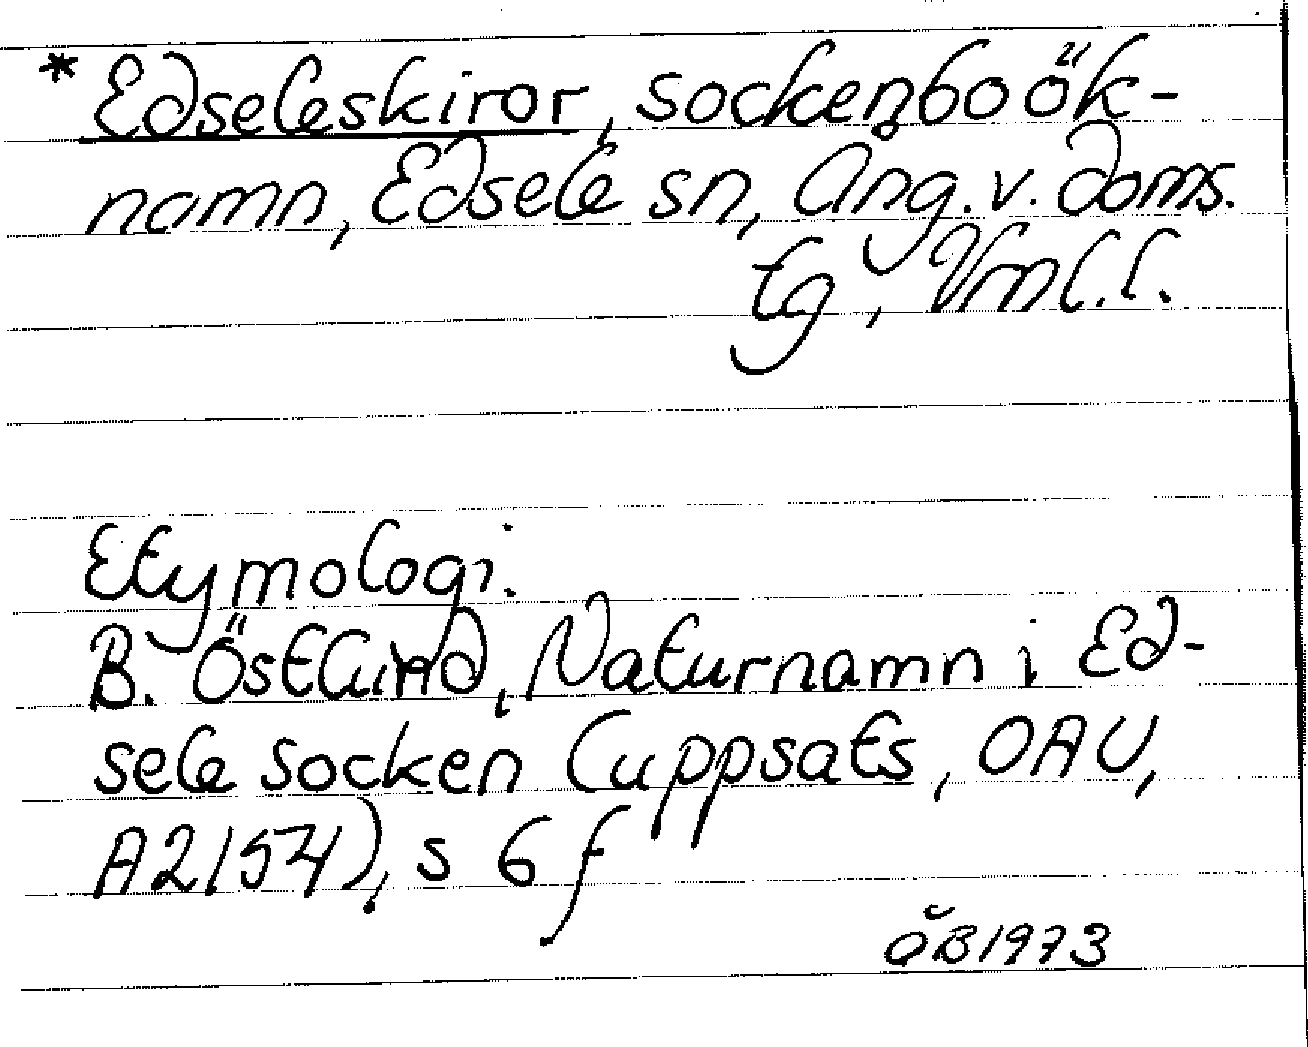 *Edseleskiror, sockenboök-
namn, Edsele sn, Ång.v.doms.
tg, Vrnl.l.
Etymologi.
B. Östlund, Naturnamn i Ed-
sele socken (uppsats, OAU,
A2/54), s 6 f
ÖB1973